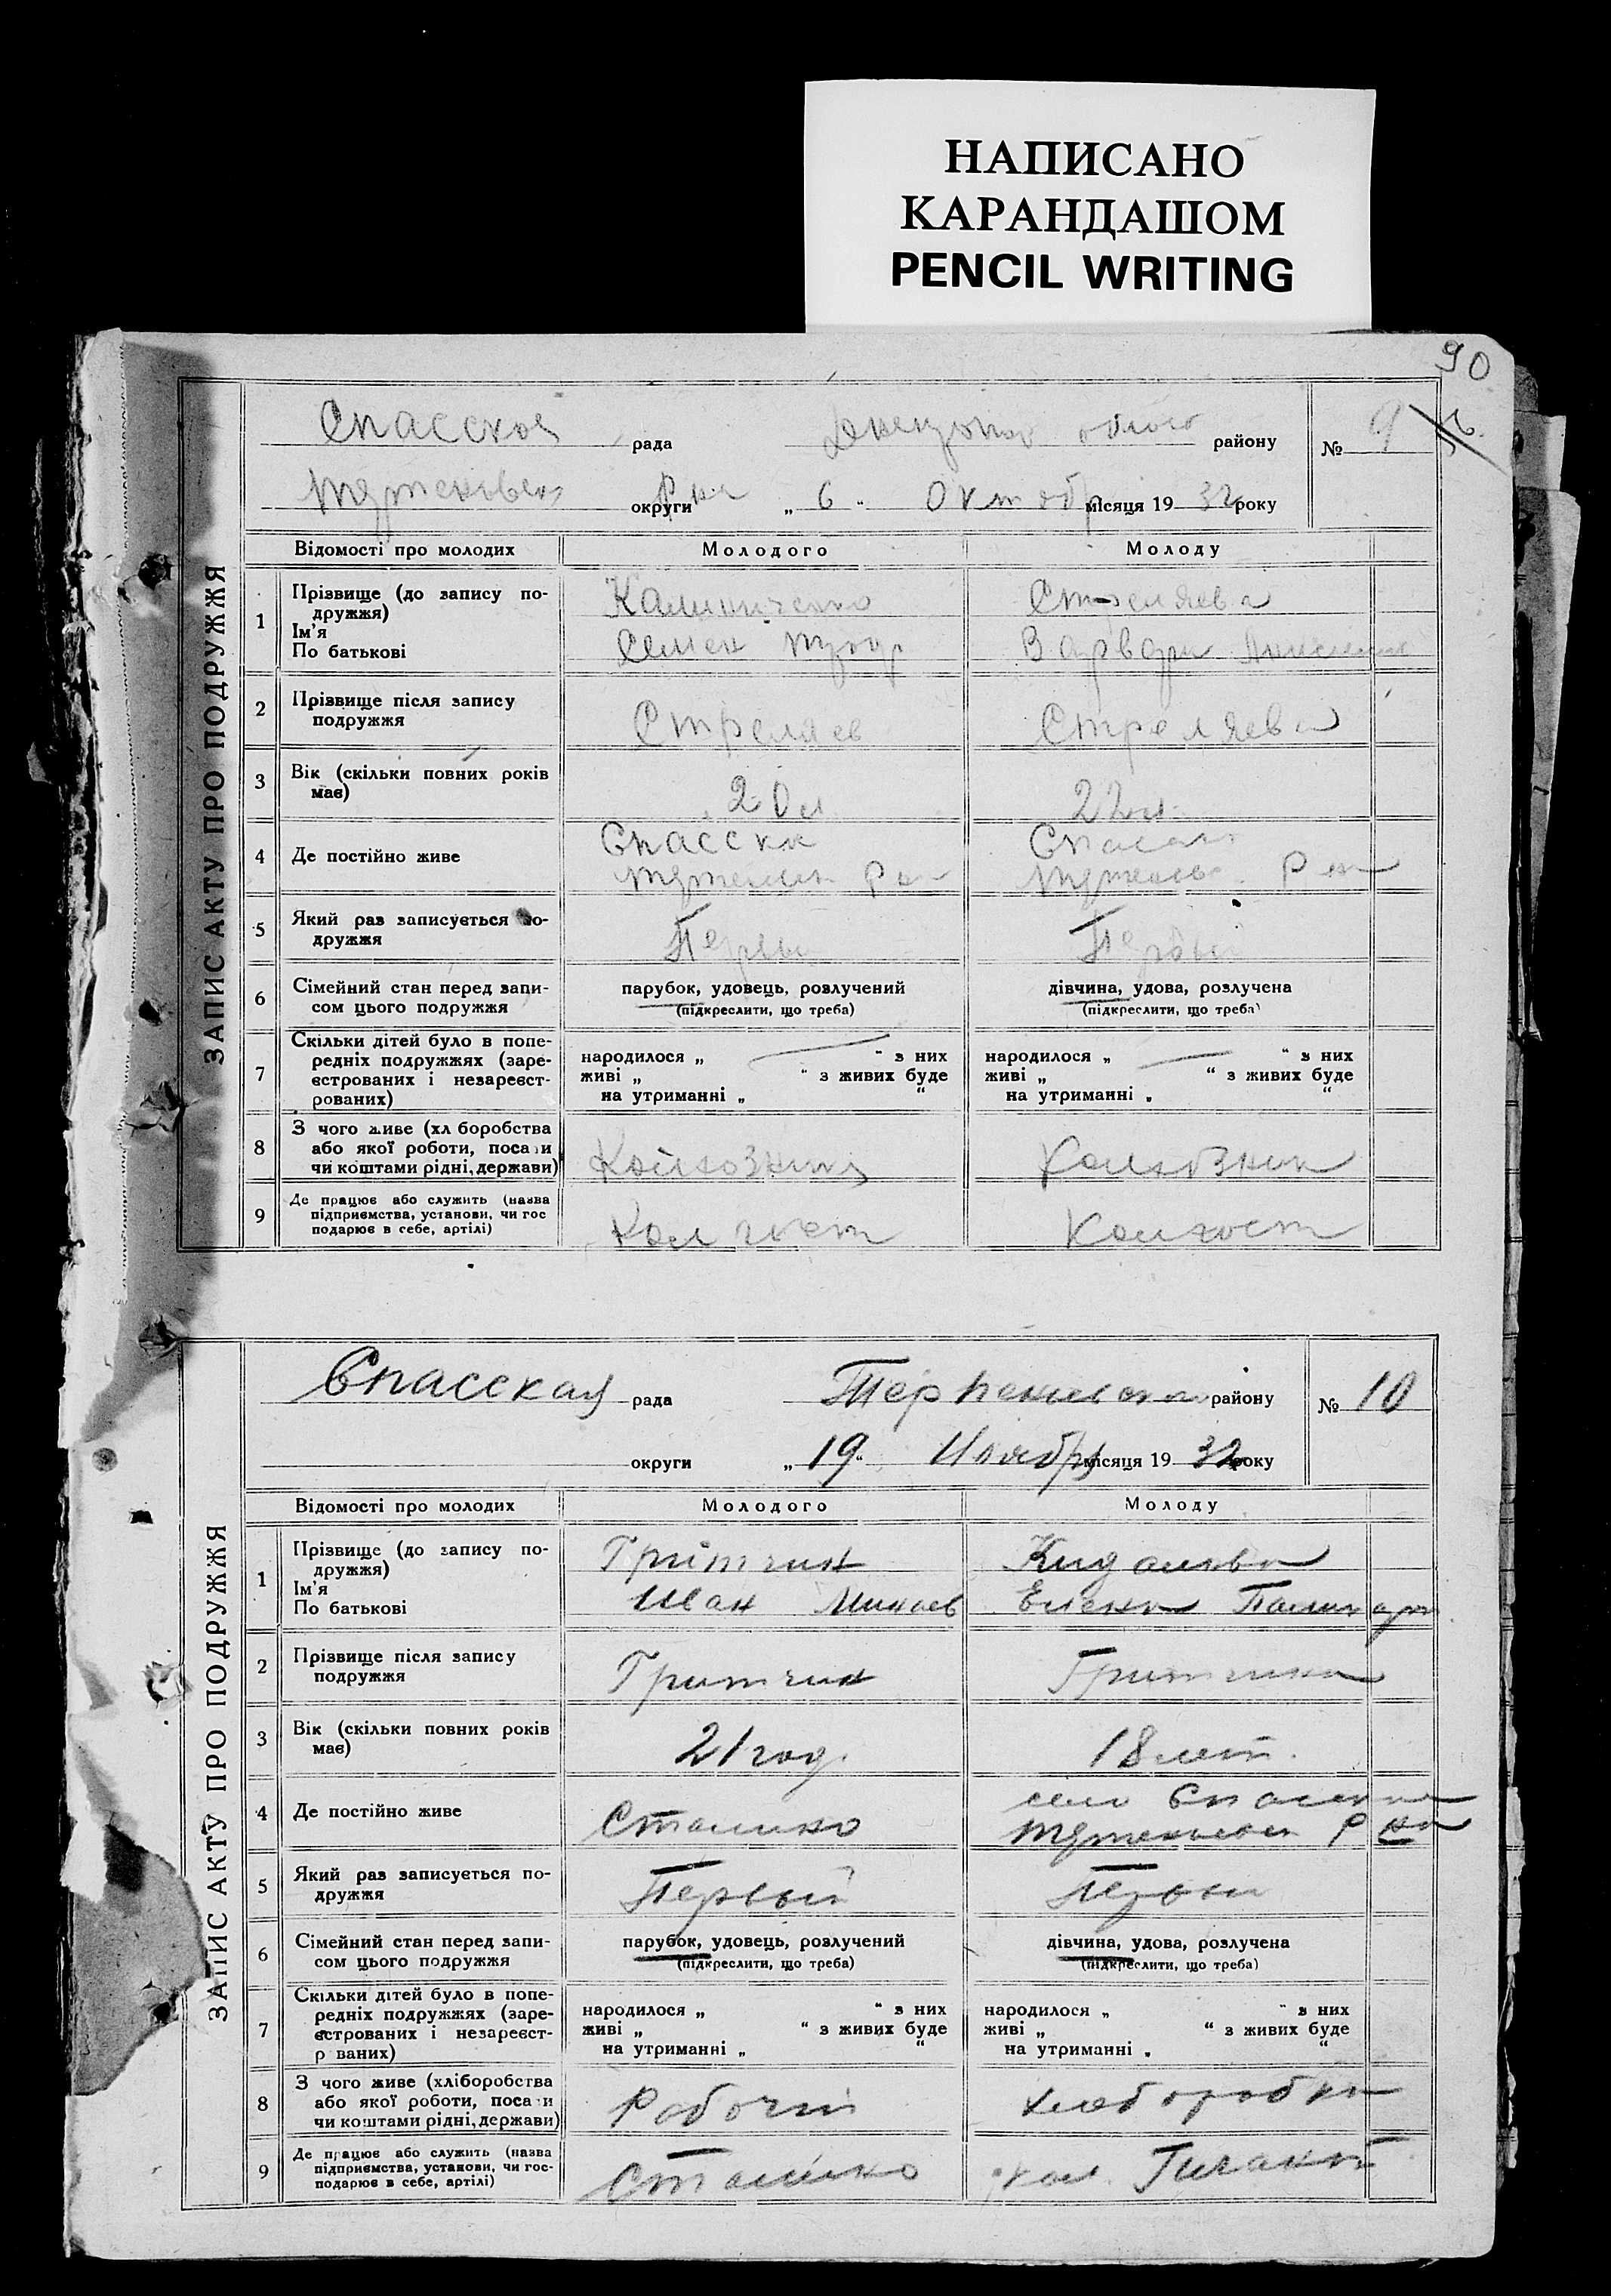 НАПИСАНО
КАРАНДАШОМ
PENCIL WRITING
90
ЗАПИС АКТУ ПРО ПОДРУЖЖЯ
Спасской рада району № 9
округи „ 6 " Октобр місяця 19 32 року
Відомості про молодих Молодого Молоду
1 Прізвище (до запису по-
дружжя)
Ім'я
По батькові
Калиниченко
Семен
Стреляева
Варвара
2 Прізвище після запису
подружжя
Стреляев Стреляева
3 Вік (скільки повних років
має)
20 л 22 л.
4 Де постійно живе
Спасска
5 Який раз записується по-
дружжя
Первы Первый
6 Сімейний стан перед запи-
сом цього подружжя
парубок, удовець, розлучений
(підкреслити, що треба)
дівчина, удова, розлучена
(підкреслити, що треба)
7 Скільки дітей було в попе-
редніх подружжях (заре-
єстрованих і незареєст-
рованих)
народилося „ " з них
живі „ " з живих буде
на утриманні „ "
народилося „ " з них
живі „ " з живих буде
на утриманні „ "
8 З чого живе (хл боробства
або якої роботи, поса и
чи коштами рідні, держави)
Колхозник
9 Де працює або служить (назва
підприємства, установи, чи гос
подарює в себе, артілі)
Колхост Колхост
ЗАПИС АКТУ ПРО ПОДРУЖЖЯ
Спасская рада району № 10
округи „ 19 " Ноября місяця 19 32 року
Відомості про молодих Молодого Молоду
1 Прізвище (до запису по-
дружжя)
Ім'я
По батькові
Гритчин
Иван Минаев
Елена
2 Прізвище після запису
подружжя
Гритчин
3 Вік (скільки повних років
має)
21 год. 18 лет.
4 Де постійно живе
Сталино
село
5 Який раз записується по-
дружжя
Первый Первы
6 Сімейний стан перед запи-
сом цього подружжя
парубок, удовець, розлучений
(підкреслити, що треба)
дівчина, удова, розлучена
(підкреслити, що треба)
7 Скільки дітей було в попе-
редніх подружжях (заре-
єстрованих і незареєст-
р ваних)
народилося „ " з них
живі „ " з живих буде
на утриманні „ "
народилося „ " з них
живі „ " з живих буде
на утриманні „ "
8 З чого живе (хліборобства
або якої роботи, поса и
чи коштами рідні, держави)
Робочий
9 Де працює або служить (назва
підприємства, установи, чи гос-
подарює в себе, артілі)
Сталино кол.